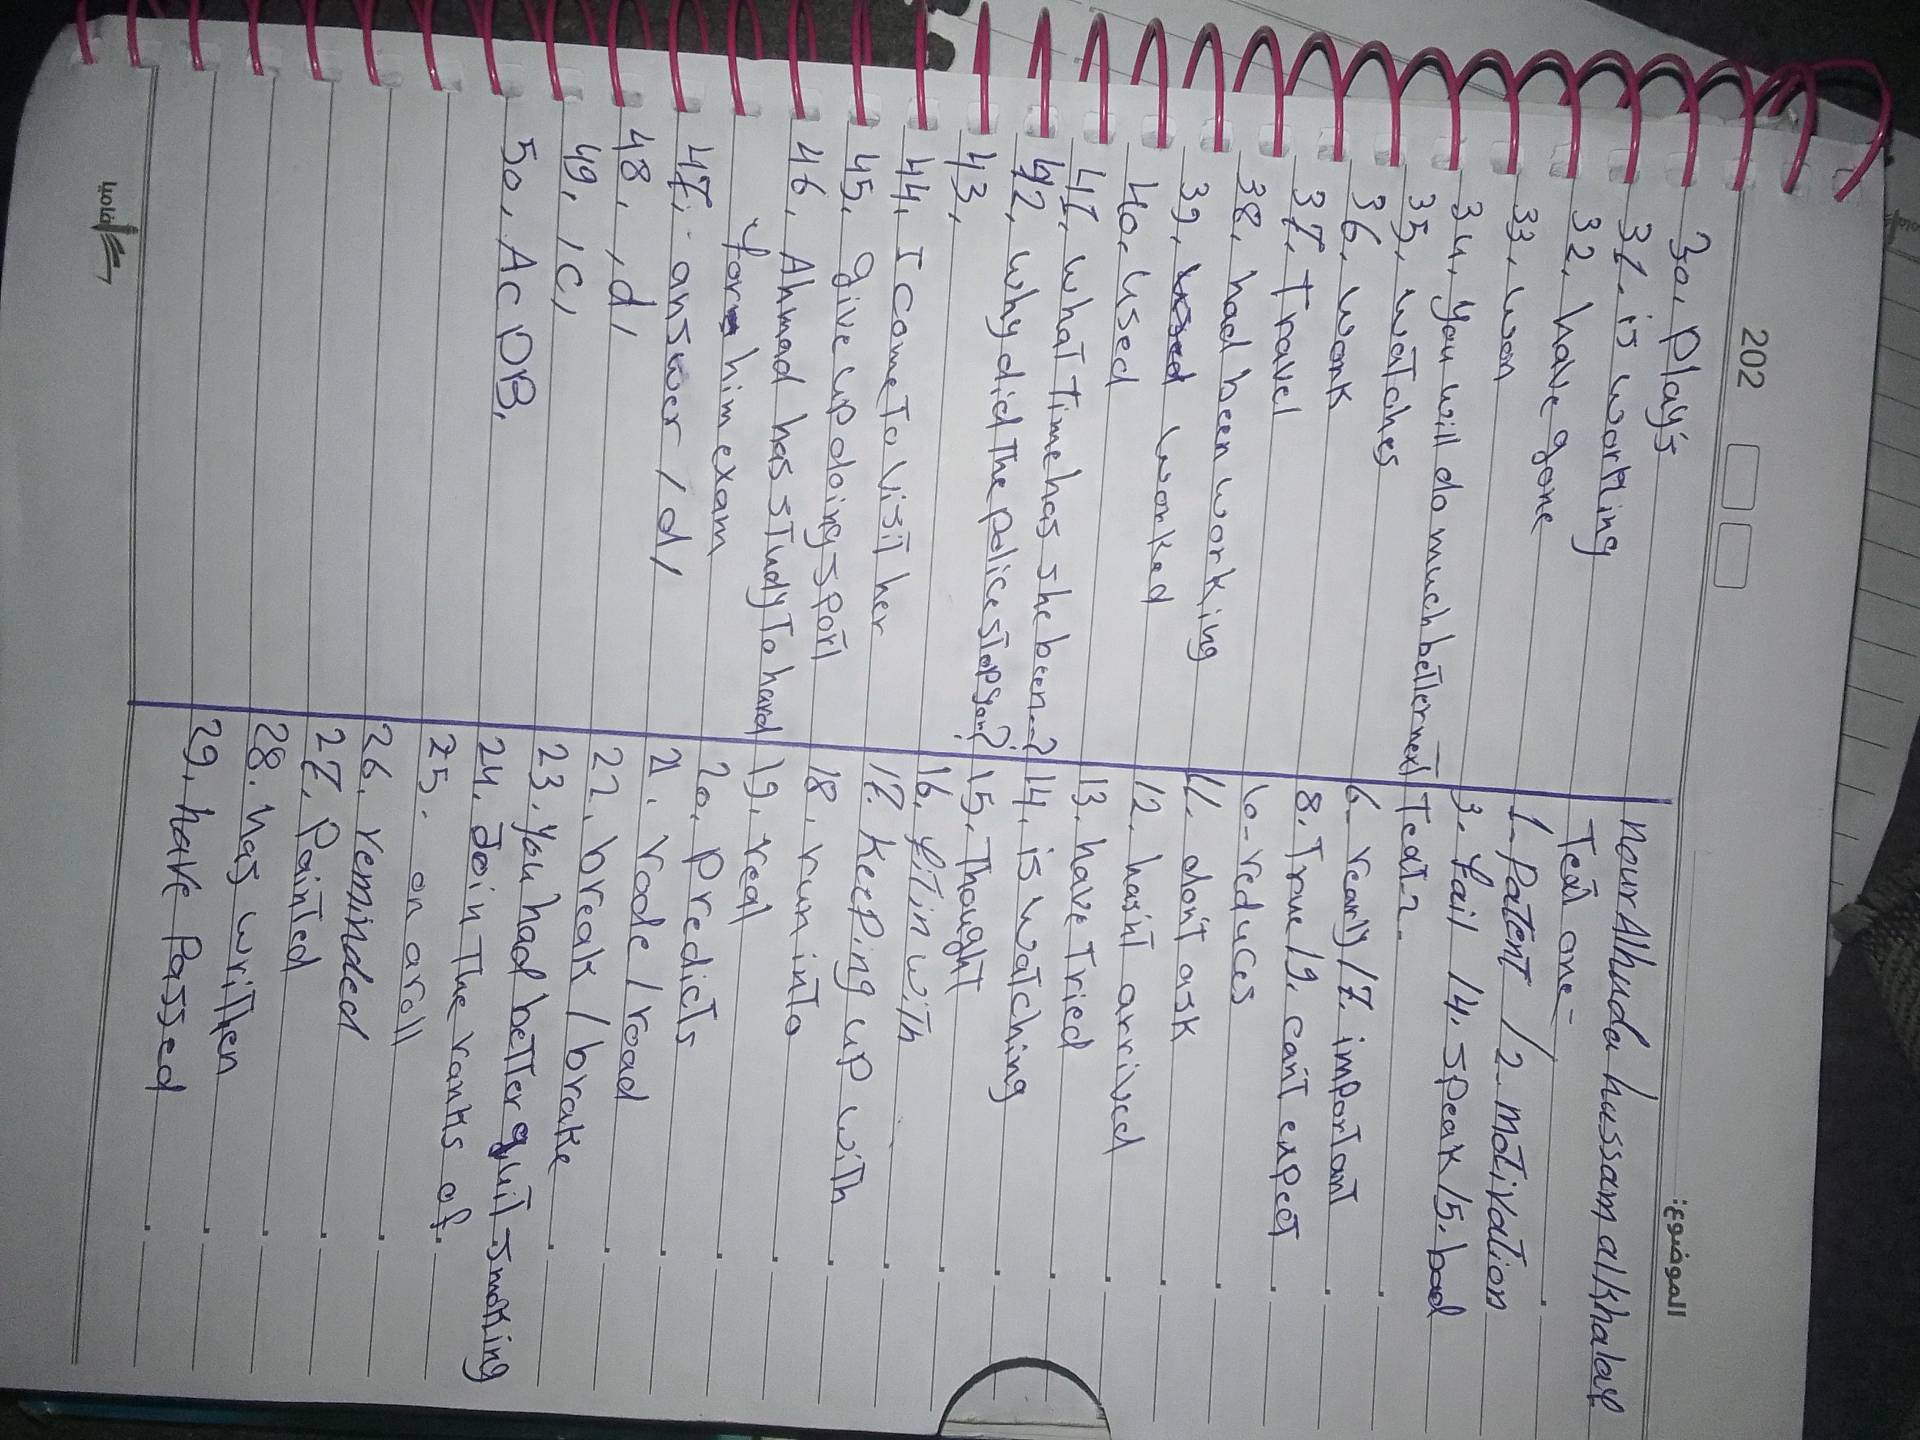 202
الموضوع:
Nour Alhuda hussam alkhalaf
Text one
1- Patent / 2- motivation
3. fail / 4. speak / 5. bad
Text 2-
6- nearly / 7. important
8. True / 9. can't expect
10- reduces
11. don't ask
12. hasn't arrived
13. have tried
14. is watching
15. Thought
16. fit in with
17. Keeping up with
18. run into
19. real
20. predicts
21. rode / road
22. break / brake
23. you had better quit smoking
24. Join The ranks of
25. on a roll
26. reminded
27. Painted
28. has written
29. have Passed
30. Play's
31. is working
32. have gone
33. won
34. you will do much better next
35. watches
36. work
37. Travel
38. had been working
39. worked
40. used
41. what time has she been..?
42. why did The police stop you?
43.
44. I come To visit her
45. give up doing sport
46. Ahmad has study To hard
for him exam
47. answer / d /
48. , d ,
49. , c ,
50. A c D B.